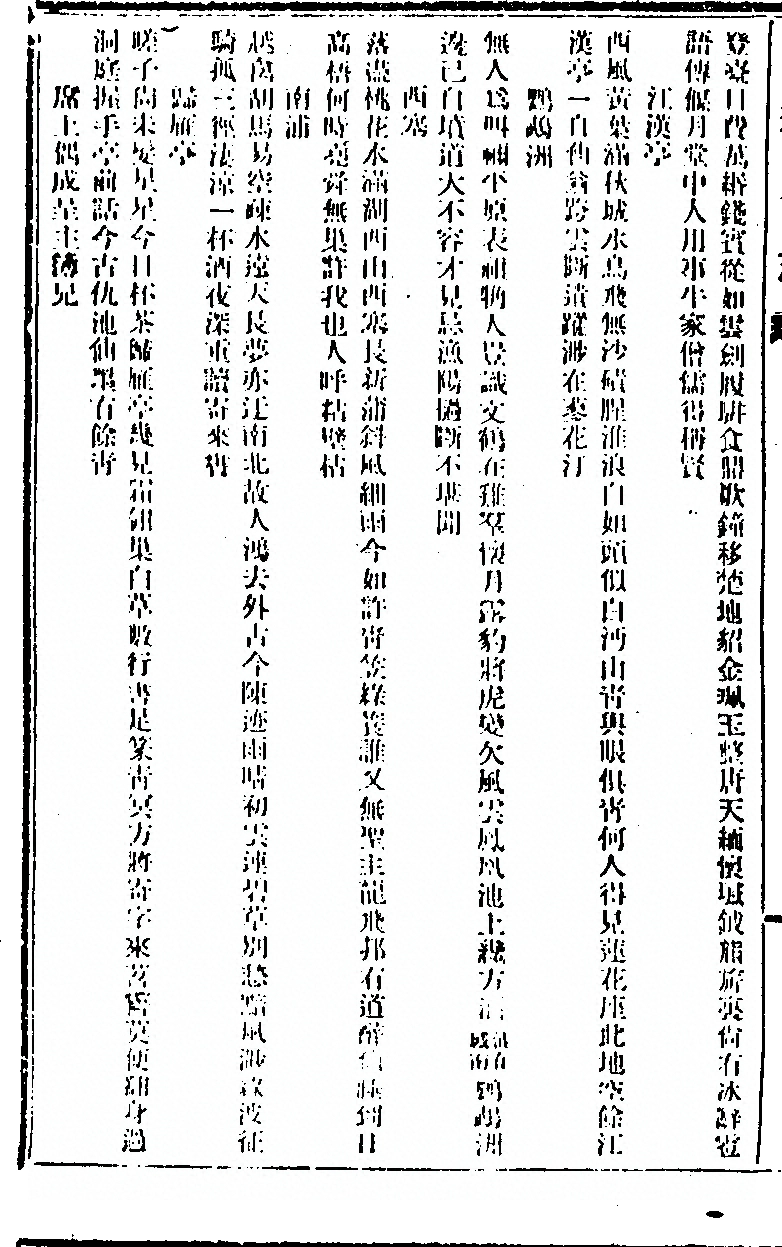 登臺日費萬緡錢賓從如雲劍履駢食腊歌鐘移楚地紹金珮玉整唐天緬懷城鉞旌旂奕尚有冰
語傳偃月堂中人用事牛家僧儒得稱賢
江漢亭
西風黃葉滿秋城水鳥飛無沙磧腥淮浪白如頭似白河山青與眼俱青何人得見蓮花座此地空餘江
漢亭一自仙翁跨雲斷遺蹤渺在蓼花汀
鸚鵡洲
無人爲叫禰平原表禰衡人豈識文鶴在雞羣懷月露豹將虎變欠風雲鳳凰池上幾方 城南 鸚鵡洲
邊已白墳道大不容才見忌漁陽撾斷不堪聞
西塞
落盡桃花水滿湖西山西塞長新蒲斜風細雨今如許青笠綠蓑誰又無聖主龍飛邦有道醉 眠到日
高梧何時堯舜無巢許我也人呼枯壁枯
南浦
越鳥胡馬易空疎水遠天長夢亦迂南北故人鴻去外古今陳迹雨晴初雲連碧草別愁黯風渺綠波征
騎孤三徑淒涼一杯酒夜深重讀寄來書
歸雁亭
嗟子何來鬢星星今日杯茶歸雁亭幾見霜翎集白草數行書足篆青冥方將寄字來苕 莫便翻身過
洞庭握手亭前話今古仇池仙墨有餘青
席上偶成呈主簿兄